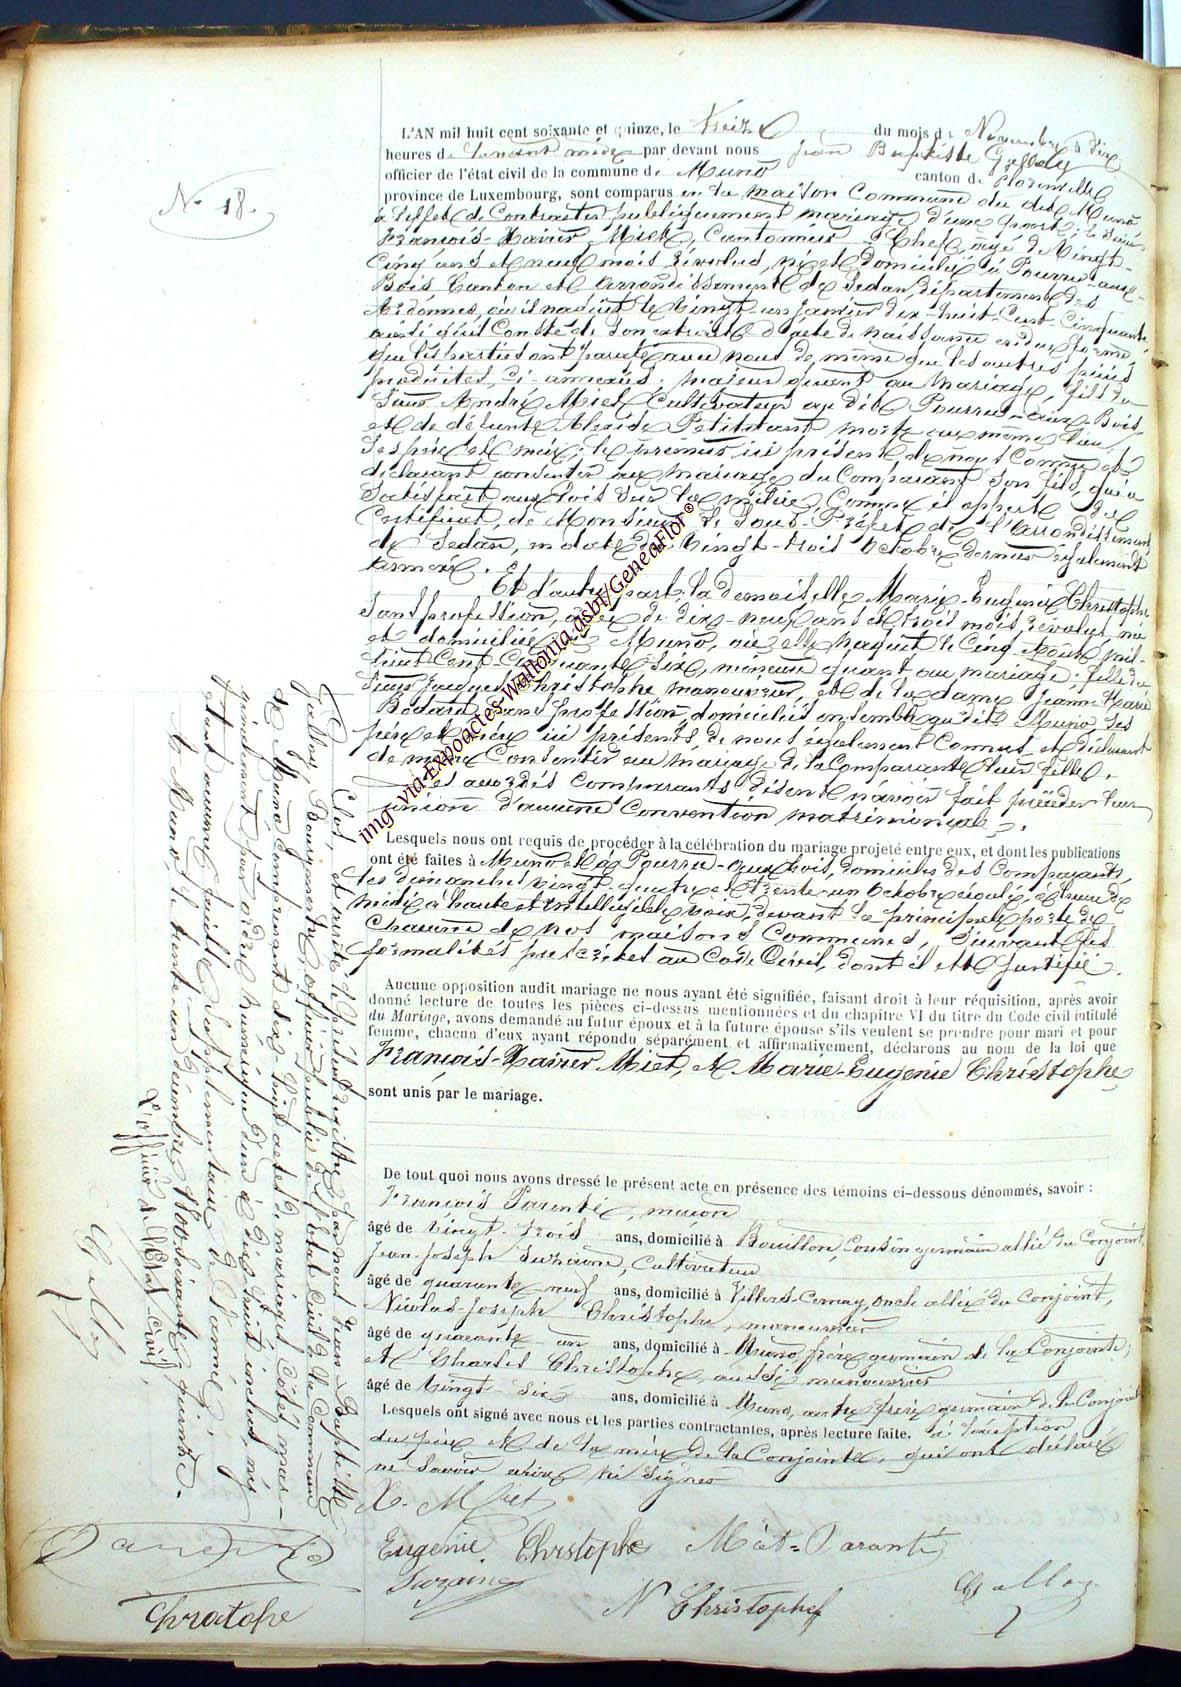 N° 18.
L'AN mil huit cent soixante et quinze, le treize du mois de Novembre à dix
heures devant midi par devant nous Jean Baptiste
officier de l'état civil de la commune de Muno canton de Florenville
province de Luxembourg, sont comparus en la maison Commune du dit Muno
à l'effet de Contracter publiquement mariage d'une part, le Sieur
François-Xavier Miet, Cantonnier-Chef, âgé de Vingt-
Cinq ans et neuf mois révolus, né et domicilié à Pourru-aux-
Bois Canton et Arrondissement de Sedan, département des
Ardennes, où il naquit le Vingt-un Janvier dix-huit-Cent-Cinquante
ainsi qu'il Conste de son extrait d'acte de naissance en due forme,
que les parties ont avec nous de même que les autres pièces
produites, ci-annexées; majeur quant au mariage, fils du
Sieur André Miet Cultivateur au dit Pourru-aux-Bois
et de défunte Petitmant morte au même lieu,
ses père et mère; le premier ici présent de nous Connu et
déclarant consentir au mariage du Comparant Son fils, qui a
Satisfait aux lois Sur la milice, Comme il appert du
Certificat, de Monsieur le Sous-Préfet de l'Arrondissement
de Sedan, en date du Vingt-trois Octobre dernier également
annexé.
Et d'autre part, la demoiselle Marie-Eugénie Christophe
Sans profession, âgée de dix-neuf ans et trois mois révolus, née
et domiciliée à Muno, où elle naquit le Cinq Août mil-
huit-Cent-Cinquante-Six, mineure quant au mariage; fille du
Sieur Jacques Christophe manouvrier, et de la dame Jeanne Marie
Bodard, sans profession, domiciliés ensemble au dit Muno Ses
père et mère ici présents, de nous également Connus, et déclarant
de même Consentir au mariage de la Comparante leur fille.
Les dits Comparants disent n'avoir fait précéder leur
union d'aucune Convention matrimoniale.
Lesquels nous ont requis de procéder à la célébration du mariage projeté entre eux, et dont les publications
ont été faites à Muno et à Pourru-aux-Bois, domiciles des Comparants,
les dimanches vingt-quatre et trente-un Octobre écoulé, à l'heure de
midi à haute et intelligible voix, devant la principale porte de
Chacune de nos maisons Communes, Suivant les
formalités prescrites au Code Civil, dont il est Justifié.
Aucune opposition audit mariage ne nous ayant été signifiée, faisant droit à leur réquisition, après avoir
donné lecture de toutes les pièces ci-dessus mentionnées et du chapitre VI du titre du Code civil intitulé
du Mariage, avons demandé au futur époux et à la future épouse s'ils veulent se prendre pour mari et pour
femme, chacun d'eux ayant répondu séparément et affirmativement, déclarons au nom de la loi que
François-Xavier Miet, et Marie-Eugénie Christophe
sont unis par le mariage.
De tout quoi nous avons dressé le présent acte en présence des témoins ci-dessous dénommés, savoir :
François Parenté, maçon
âgé de Vingt-trois ans, domicilié à Bouillon, Cousin germain allié du Conjoint,
Jean-Joseph Suzaine, Cultivateur
âgé de quarante neuf ans, domicilié à Villers-Cernay, Oncle allié du Conjoint,
Nicolas-Joseph Christophe, manouvrier
âgé de quarante-un ans, domicilié à Muno, frère germain de la Conjointe;
et Charles Christophe, aussi manouvrier
âgé de Vingt-Six ans, domicilié à Muno, autre frère germain de la Conjointe
Lesquels ont signé avec nous et les parties contractantes, après lecture faite, à l'exception
du père et de la mère de la Conjointe, qui ont déclaré
ne Savoir écrire ni Signer
X. Miet
Eugenie Christophe Miet=Paranté
Suzaine
N Christophe
Christophe
Clos et arrêté le présent registre par nous Jean-Baptiste
Bourgmestre, officier public de l'état Civil de la Commune
de Muno, Contenant dix-huit actes de mariages Cotés
par ordre numérique d'un à dix-huit inclus,
aucune feuille Supplémentaire de l'année;
À Muno, le trente-un décembre 1800 Soixante quinze.
L'officier de l'État-Civil,
img via Expoactes-Wallonia.asbl/GeneaFlor®